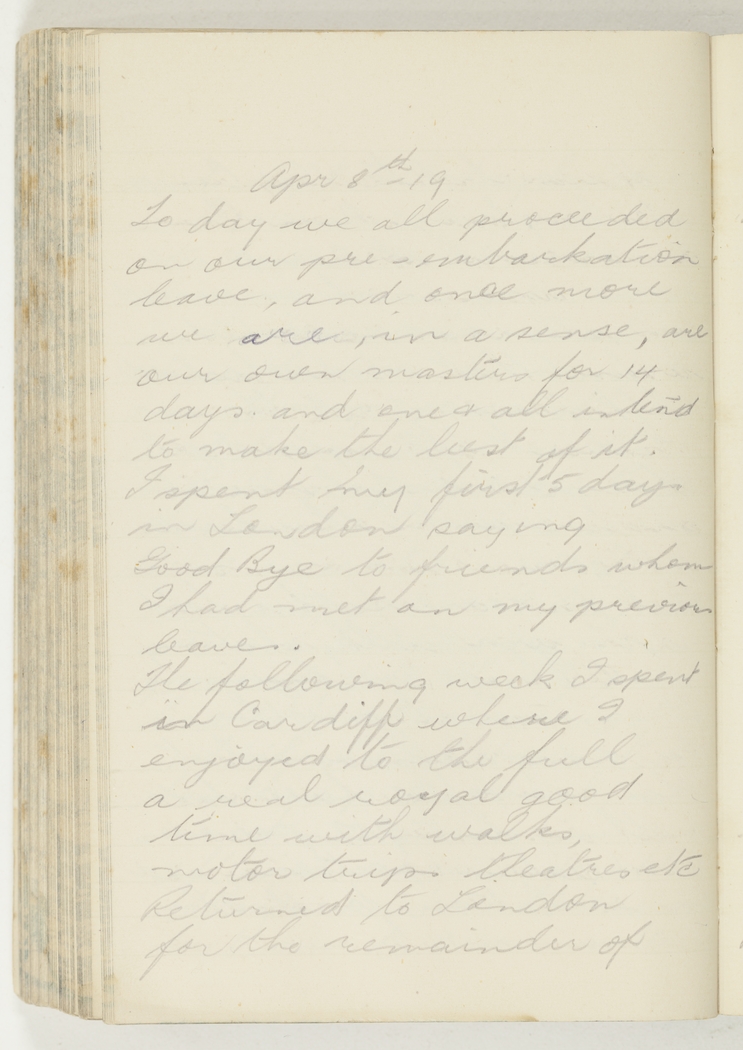 Apr 8th-19
To day we all proceeded
on our pre-embarkation
leave, and once more
we are, in a sense, are
our own masters for 14
days. and one & all intend
to make the best of it.
I spent my first 5 days
in London saying
Good Bye to friends whom
I had met on my previous
leaves.
The following week I spent
in Cardiff where I
enjoyed to the full
a real royal good
time with walks,
motor trips theatres etc
Returned to London
for the remainder of